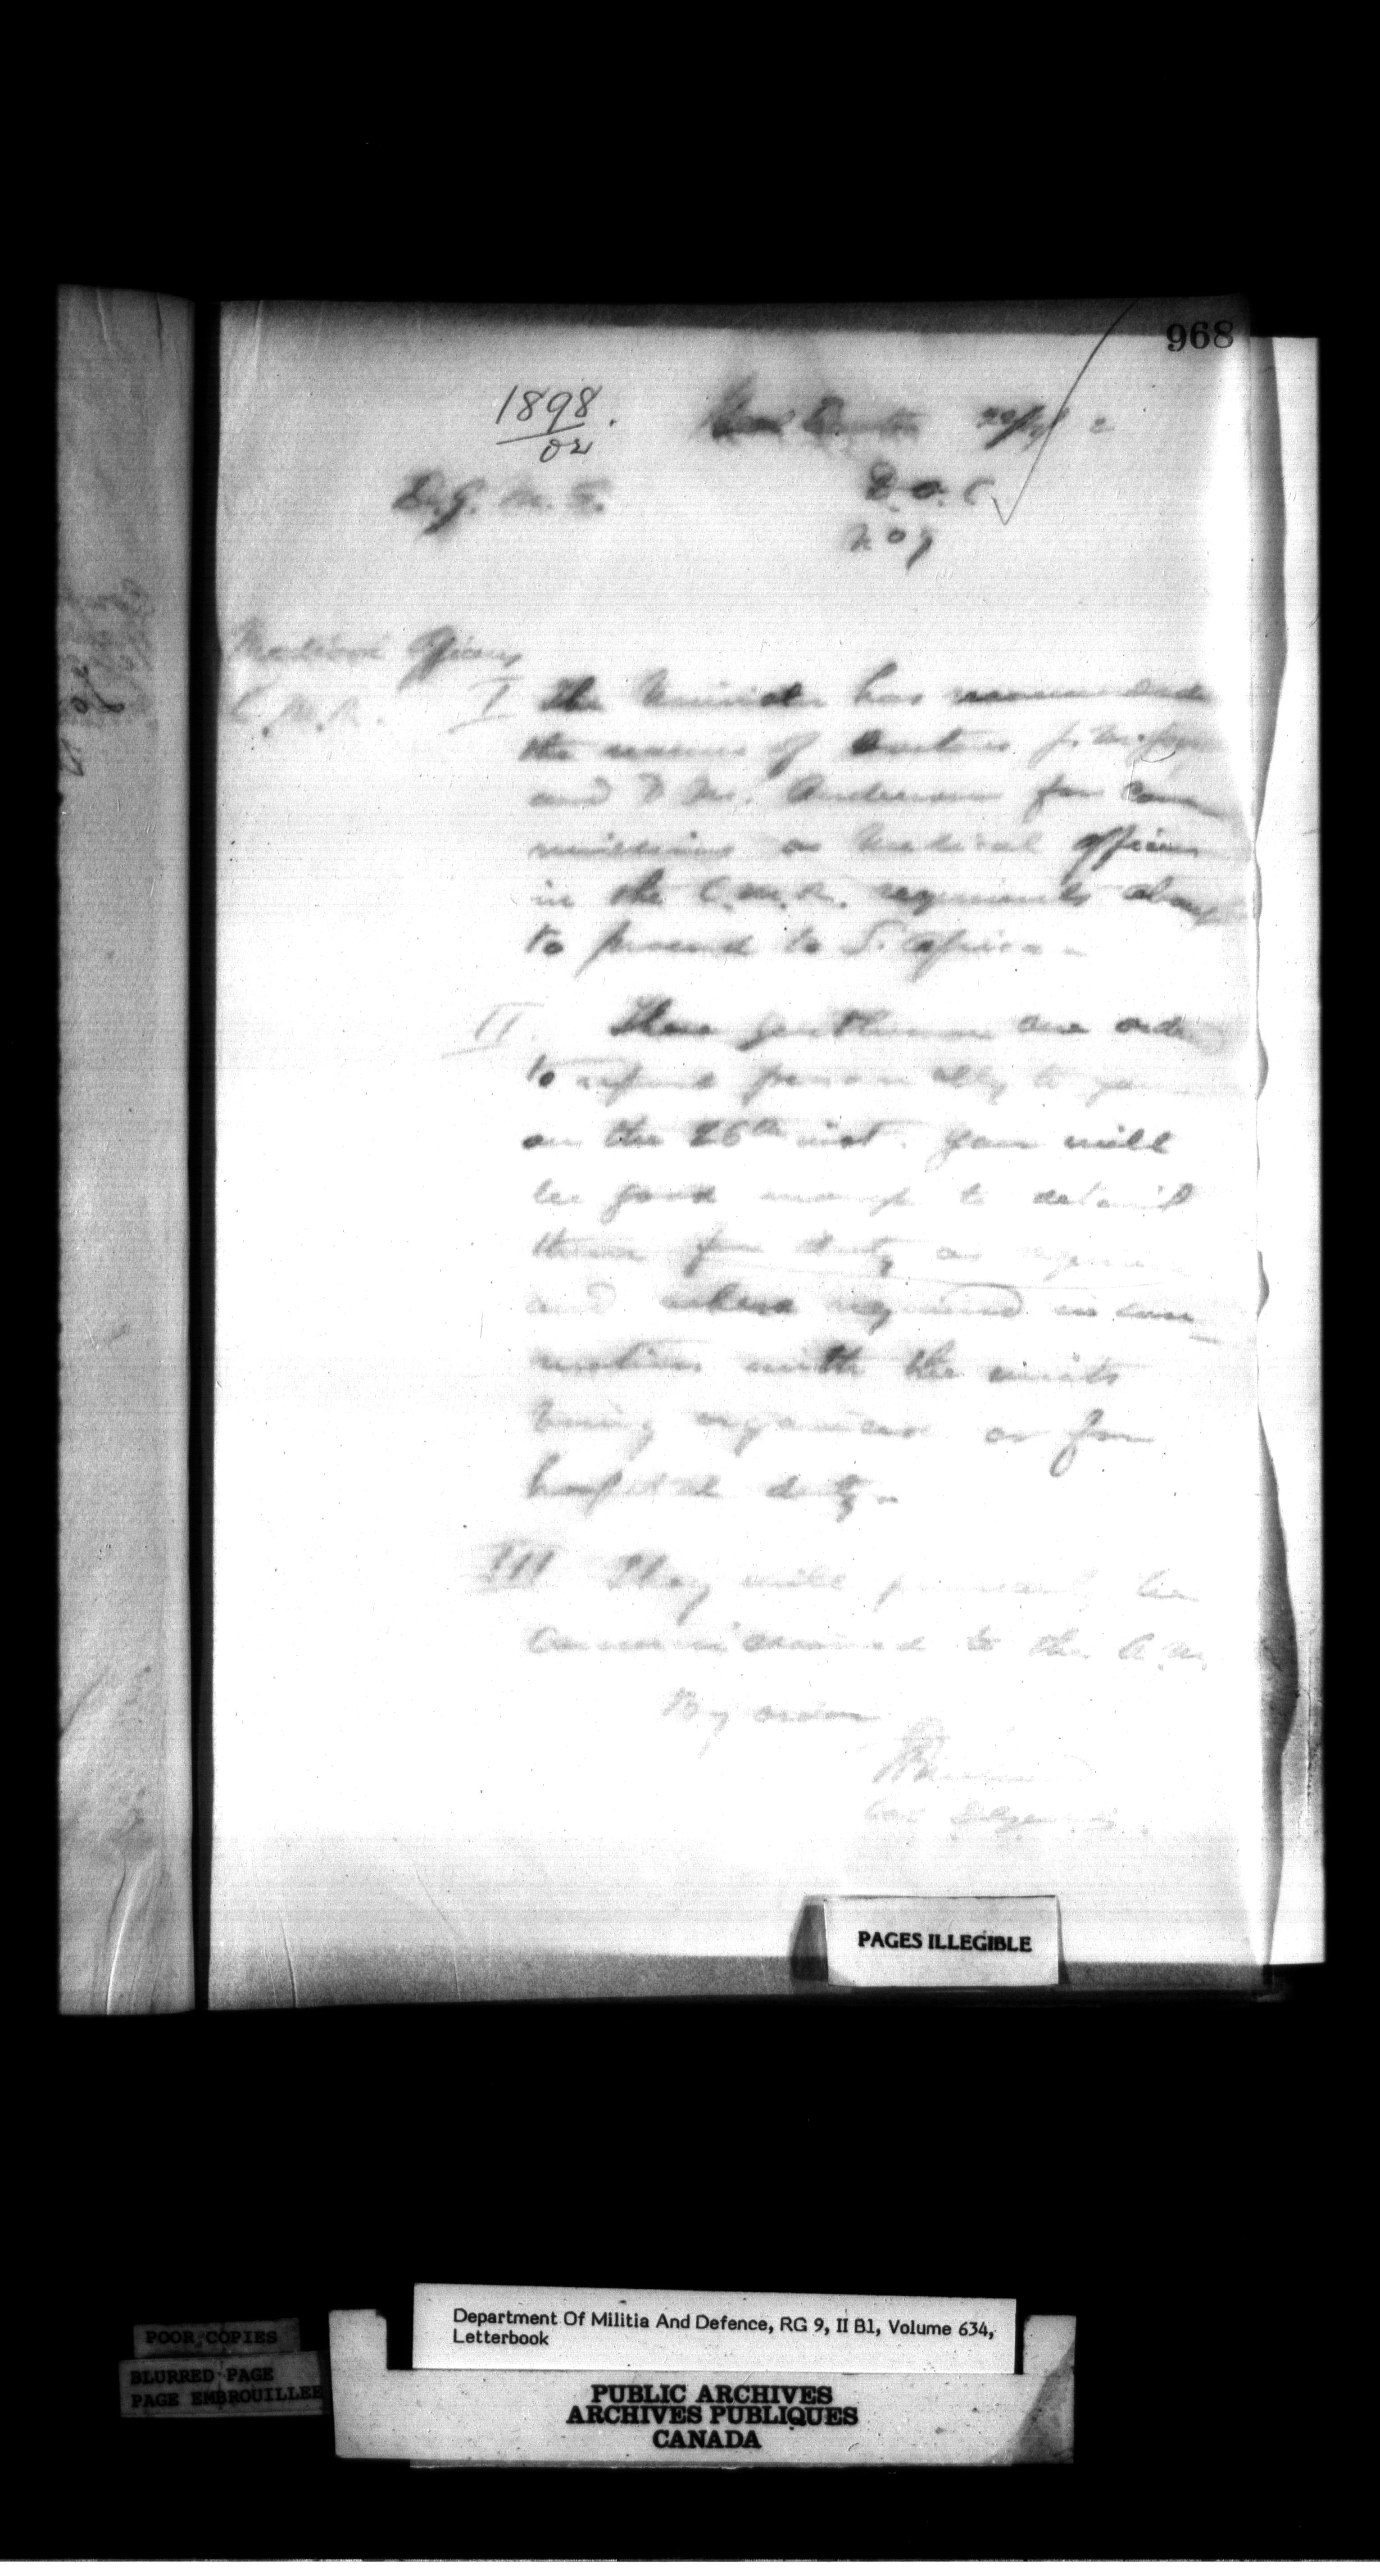 968
1898.
02
D.G.M.S.
D.O.C.
No 9
Medical Officers
C.M.R.
I The Minister has recommended
the names of Doctors J.
and D Mc. Anderson for com
missions as Medical Officers
in the C.M.R. regiments about
to proceed to S. Africa -
II. These gentlemen are
to report personally to you
on the 26th inst. You will
be good enough to detail
them for duty as
and where required in con
nection with the units
being organized or for
hospital duty -
III They will be
to the A.M.
By order
Col
PAGES ILLEGIBLE
Department Of Militia And Defence, RG 9, II B1, Volume 634,
Letterbook
POOR COPIES
BLURRED PAGE
PAGE EMBROUILLEE
PUBLIC ARCHIVES
ARCHIVES PUBLIQUES
CANADA